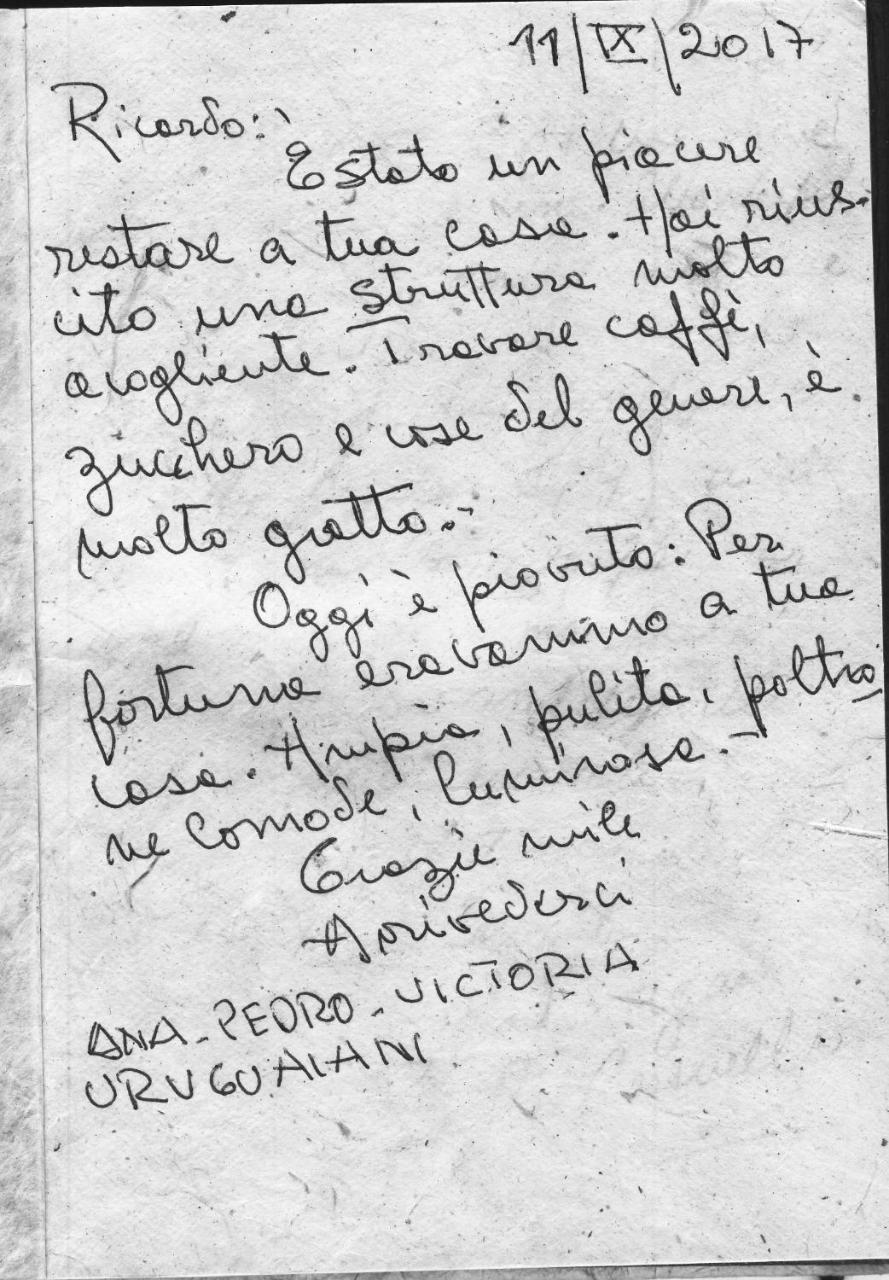 11/IX/2017
Ricardo:
È stato un piacere
restare a tua casa. Hai rius-
cito una struttura molto
acogliente. Trovare caffè,
zucchero e cose del genere, è
molto gratto.-
Oggi è piovuto: Per
fortuna eravammo a tua
casa. Ampia, pulita, poltro
ne comode, luminosa.-
Grazie mile
Arrivederci
ANA-PEDRO-VICTORIA
URUGUAIANI